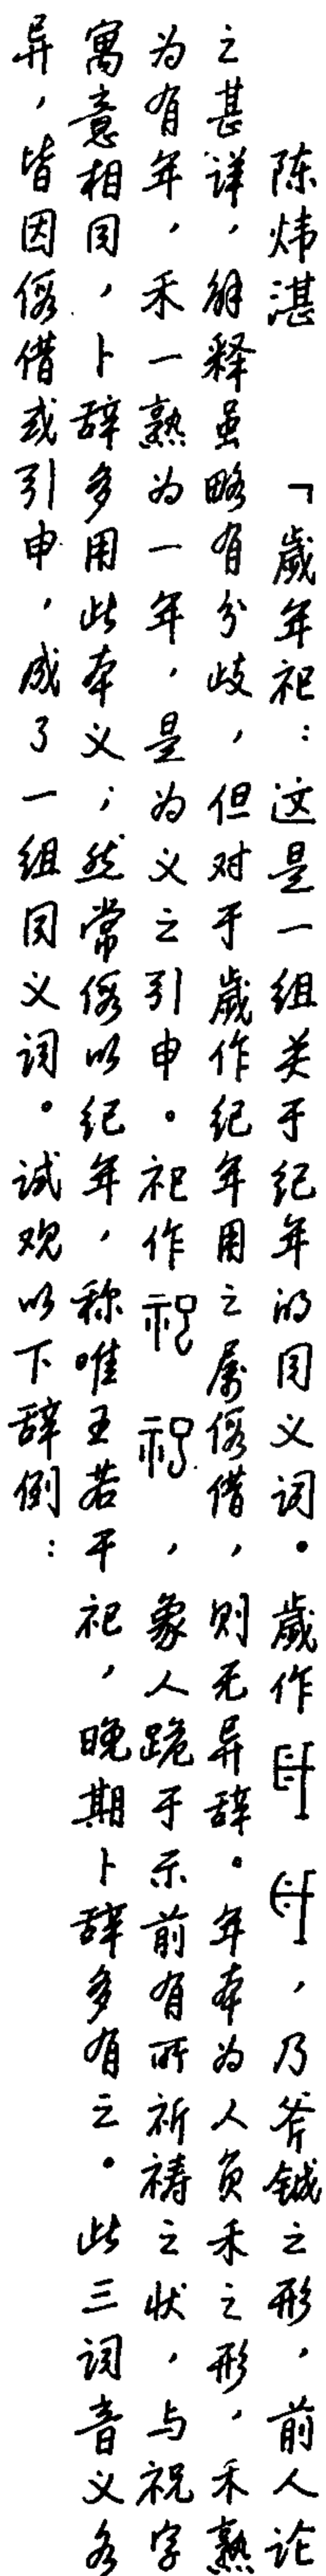 陈炜湛 「歲年祀：这是一组关于纪年的同义词。歲作，乃斧钺之形，前人论
之甚详，解释虽略有分歧，但对于歲作纪年用之属假借，则无异辞。年本为人负禾之形，禾熟
为有年，禾一熟为一年，是为义之引申。祀作，象人跪于示前有所祈祷之状，与祝字
寓意相同，卜辞多用此本义；然常假以纪年，称唯王若干祀，晚期卜辞多有之。此三词音义各
异，皆因假借或引申，成了一组同义词。试观以下辞例：